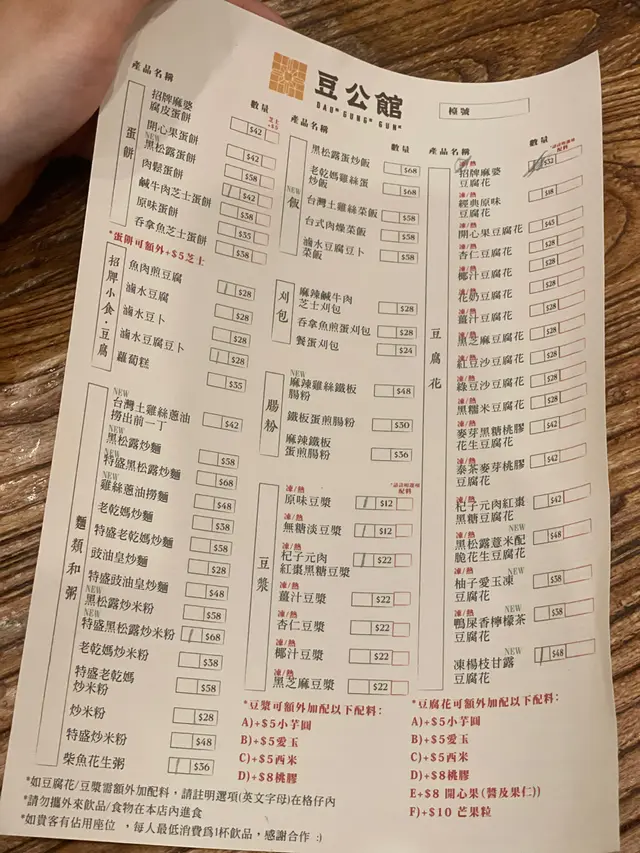 豆公館
DAU* GUNG* GUN*
檯號
產品名稱
數量
芝士
+$5
蛋餅
招牌麻婆
腐皮蛋餅
$42
開心果蛋餅
$42
NEW
黑松露蛋餅
$58
肉鬆蛋餅
$42
鹹牛肉芝士蛋餅
$38
原味蛋餅
$35
吞拿魚芝士蛋餅
$38
*蛋餅可額外+$5芝士
招牌小食·豆腐
魚肉煎豆腐
$28
滷水豆腐
$28
滷水豆卜
$28
滷水豆腐豆卜
$28
蘿蔔糕
$35
麵類和粥
NEW
台灣土雞絲蔥油
撈出前一丁
$42
NEW
黑松露炒麵
$58
NEW
特盛黑松露炒麵
$68
NEW
雞絲蔥油撈麵
$48
老乾媽炒麵
$38
特盛老乾媽炒麵
$58
豉油皇炒麵
$28
特盛豉油皇炒麵
$48
NEW
黑松露炒米粉
$58
NEW
特盛黑松露炒米粉
$68
老乾媽炒米粉
$38
特盛老乾媽
炒米粉
$58
炒米粉
$28
特盛炒米粉
$48
柴魚花生粥
$36
產品名稱
數量
NEW
飯
黑松露蛋炒飯
$68
老乾媽雞絲蛋
炒飯
$68
台灣土雞絲菜飯
$58
台式肉燥菜飯
$58
滷水豆腐豆卜
菜飯
$38
刈包
麻辣鹹牛肉
芝士刈包
$28
吞拿魚煎蛋刈包
$28
餐蛋刈包
$24
腸粉
NEW
麻辣雞絲鐵板
腸粉
$48
鐵板蛋煎腸粉
$30
麻辣鐵板
蛋煎腸粉
$36
豆漿
*請註明選項
配料
凍/熱
原味豆漿
$12
凍/熱
無糖淡豆漿
$12
凍/熱
杞子元肉
紅棗黑糖豆漿
$22
凍/熱
薑汁豆漿
$22
凍/熱
杏仁豆漿
$22
凍/熱
椰汁豆漿
$22
凍/熱
黑芝麻豆漿
$22
*豆漿可額外加配以下配料:
A)+$5小芋圓
B)+$5愛玉
C)+$5西米
D)+$8桃膠
產品名稱
數量
*請註明選項
配料
豆腐花
熱
招牌麻婆
豆腐花
$32
凍/熱
經典原味
豆腐花
$18
凍/熱
開心果豆腐花
$45
凍/熱
杏仁豆腐花
$28
凍/熱
椰汁豆腐花
$28
凍/熱
花奶豆腐花
$28
凍/熱
薑汁豆腐花
$28
凍/熱
黑芝麻豆腐花
$28
凍/熱
紅豆沙豆腐花
$28
凍/熱
綠豆沙豆腐花
$28
凍/熱
黑糯米豆腐花
$28
凍/熱
麥芽黑糖桃膠
花生豆腐花
$42
凍/熱
泰茶麥芽桃膠
豆腐花
$42
凍/熱
杞子元肉紅棗
黑糖豆腐花
$42
凍/熱
NEW
黑松露薏米配
脆花生豆腐花
$48
NEW
柚子愛玉凍
豆腐花
$38
NEW
鴨屎香檸檬茶
豆腐花
$38
NEW
凍楊枝甘露
豆腐花
$48
*豆腐花可額外加配以下配料:
A)+$5小芋圓
B)+$5愛玉
C)+$5西米
D)+$8桃膠
E+$8 開心果(醬及果仁))
F)+$10 芒果粒
*如豆腐花/豆漿需額外加配料，請註明選項(英文字母)在格仔內
*請勿攜外來飲品/食物在本店內進食
*如貴客有佔用座位 ，每人最低消費爲1杯飲品，感謝合作 :)